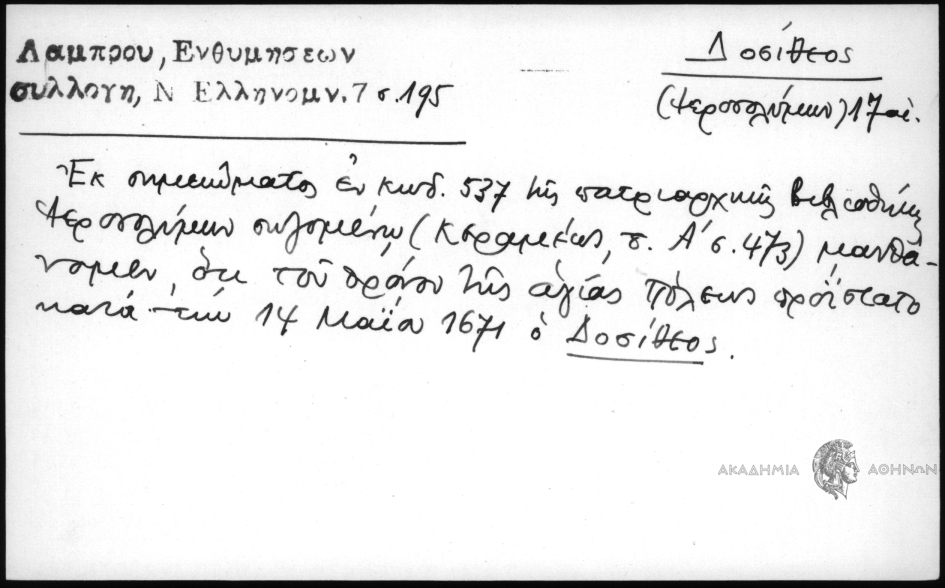 Λαμπρου, Ενθυμησεων
συλλογη, Ν Ελληνομν. 7 σ. 195
Δοσίθεος
(Ἱεροσολύμων) 17 αἰ.
Ἐκ σημειώματος ἐν κωδ. 537 τῆς πατριαρχικῆς βιβλιοθήκης
Ἱεροσολύμων σωζομένῳ (Κεραμέως, τ. Α' σ. 473) μανθά-
νομεν, ὅτι τοῦ θρόνου τῆς ἁγίας πόλεως προΐστατο
κατά τήν 14 Μαΐου 1671 ὁ Δοσίθεος.
ΑΚΑΔΗΜΙΑ ΑΘΗΝΩΝ